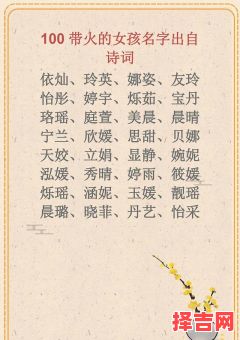 100 带火的女孩名字出自
诗词
依灿、玲英、娜姿、友玲
怡彤、婷宇、烁茹、宝丹
珞瑶、庭萱、美晨、晨晴
宁兰、欣媛、思甜、贝娜
天姣、立娟、显静、婉妮
泓媛、秀晴、婷雨、筱媛
烁瑶、涵妮、玉媛、靓瑶
晨璐、晓菲、丹艺、怡采
择吉网